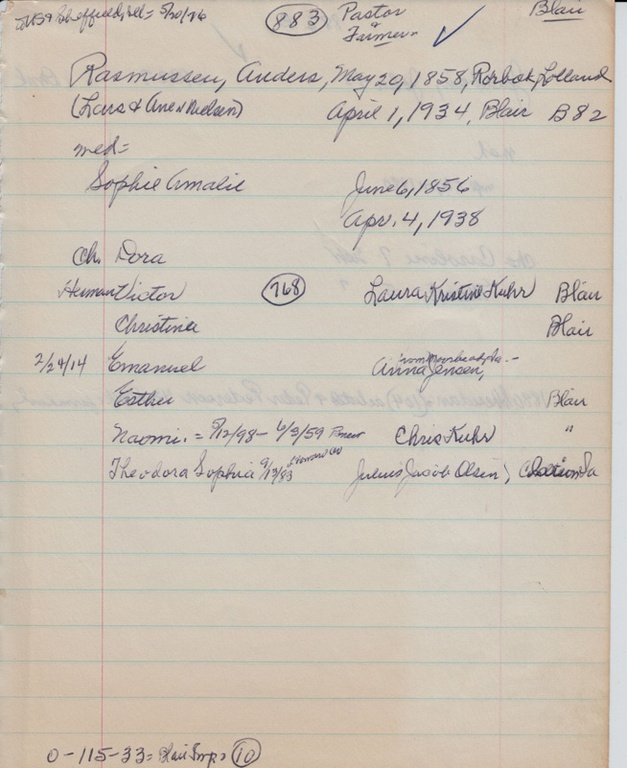 Sheffield, Ill = 5/20/86 883 Pastor Blair
& Farmer
Rasmussen, Anders, May 20, 1858, Rorbok, Lolland
(Lars & Ane Nielsen) April 1, 1934, Blair B82
med =
Sophie Amalie June 6, 1856
Apr. 4, 1938
Ch. Dora
Herman Victor 768 Laura Kristine Kuhr Blair
Christina Blair
from Moorhead, Ia. -
2/24/14 Emanuel Anna Jensen,
Esther Blair
Naomi. = 5/12/98 - 6/3/59 Chris Kuhr "
Theodora Sophia 9/13/83 Julius Jacob Olsen, Ia
0-115-33 = Blair 10